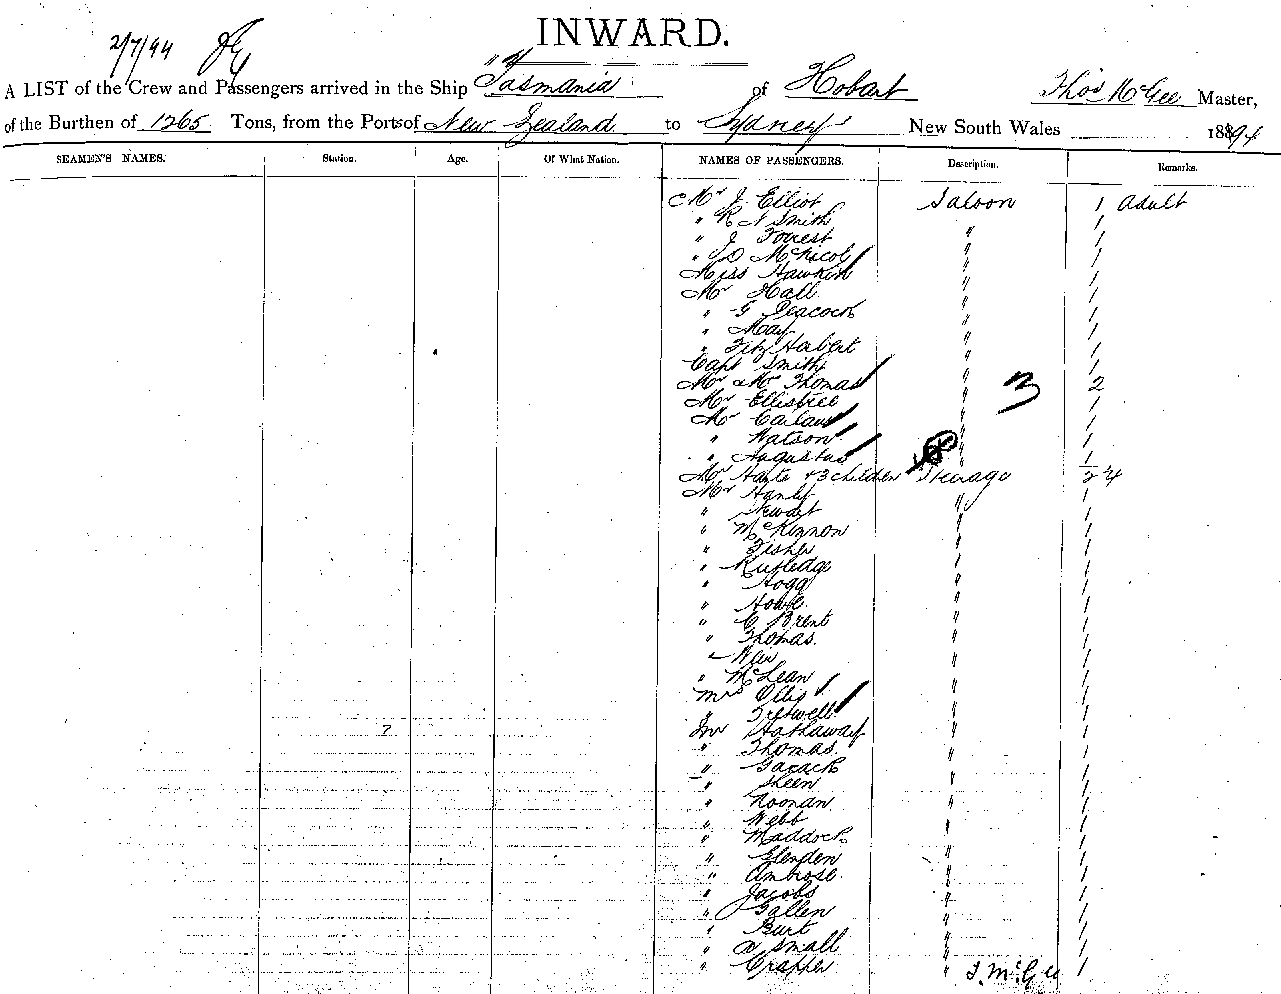 INWARD.
2/7/94
A LIST of the Crew and Passengers arrived in the Ship "Tasmania" of Hobart Thos McGee Master,
of the Burthen of 1265 Tons, from the Ports of New Zealand to Sydney New South Wales 1894
SEAMEN'S NAMES. Station. Age. Of What Nation. NAMES OF PASSENGERS. Description. Remarks.
Mr J. Elliot Saloon 1 Adult
" R N Smith " 1
" J Forrest " 1
" J D McNicol " 1
Miss Hawkin " 1
Mr Hall " 1
" G Peacock " 1
" May " 1
" Fitz Herbert " 1
Capt Smith " 1
Mr & Mrs Thomas " 3 2
Mr Ellistree " 1
Mr " 1
" Watson " 1
" Augustus " 1
& 3 children Steerage
Mr Hanly " 1
" Stewart " 1
" McKinnon " 1
" Fisher " 1
" Rutledge " 1
" Hogg " 1
" Howe " 1
" C Brent " 1
" Thomas. " 1
" Weir " 1
" McLean " 1
Mrs Ollis " 1
" " 1
Mr Hathaway " 1
" Thomas. " 1
" Garack " 1
" Skeen " 1
" Noonan " 1
" Webb " 1
" Maddock " 1
" Glenden " 1
" Ambrose. " 1
" Jacobs " 1
" Gallen " 1
" Burt " 1
" A Small " 1
" Crapper " T. McGee 1